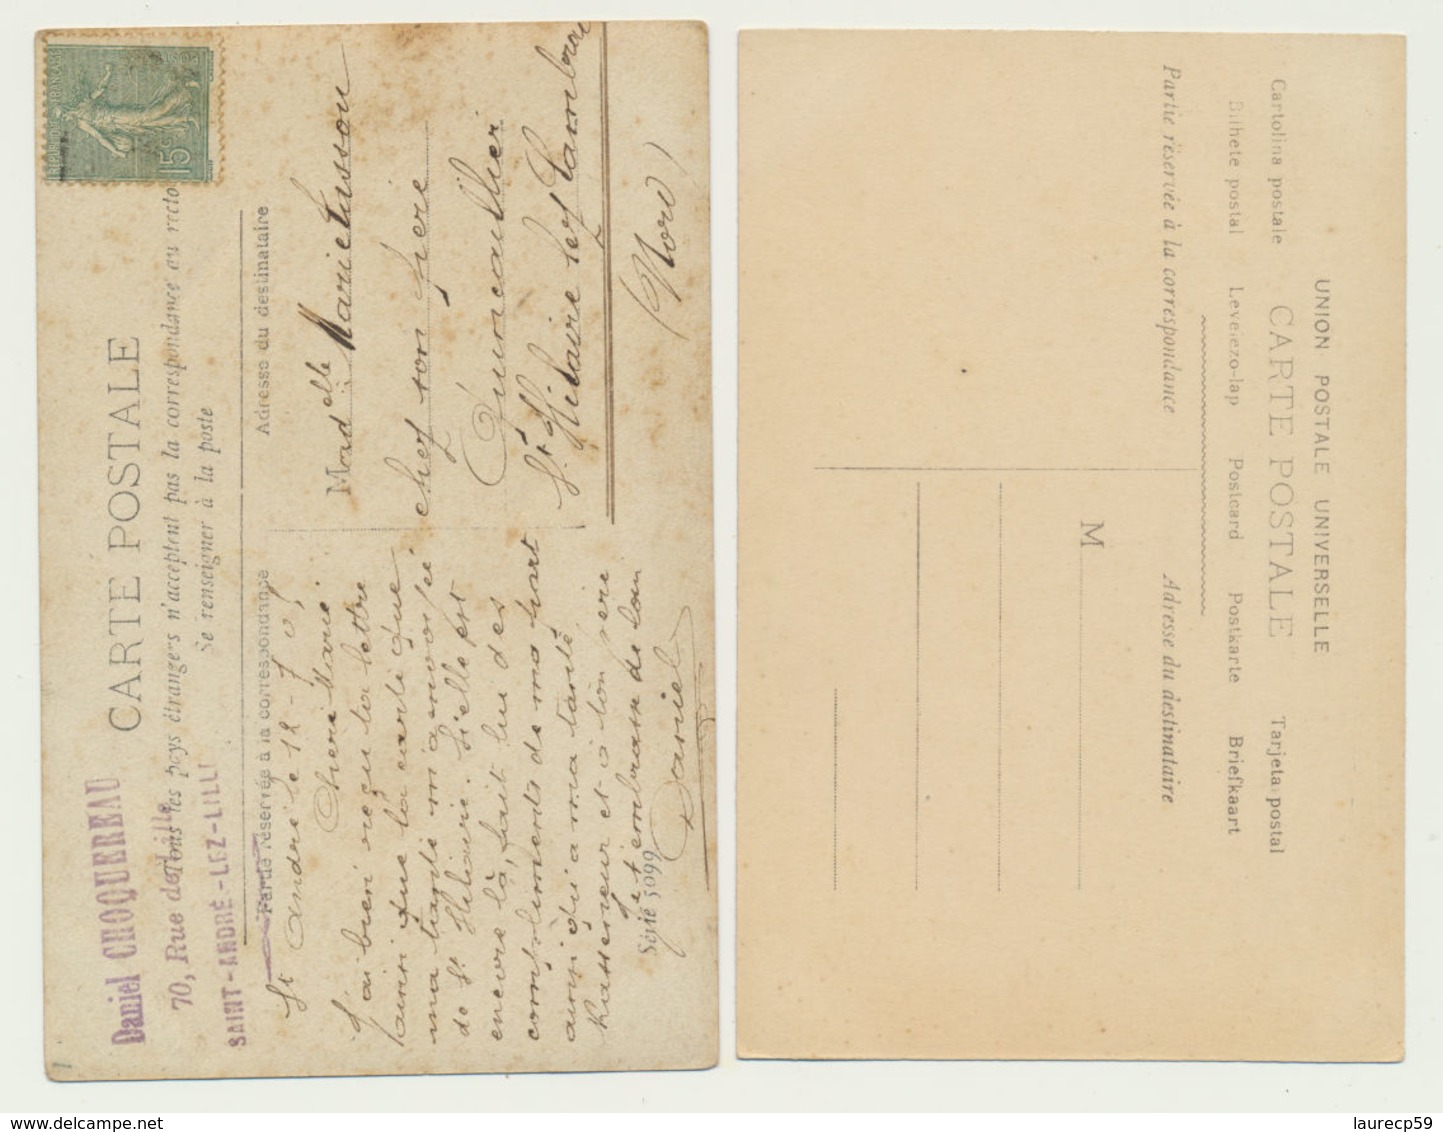 Daniel CHOQUEREAU
70, Rue de Lille
SAINT-ANDRÉ-LEZ-LILLE
RÉPUBLIQUE FRANÇAISE
POSTES
15c
CARTE POSTALE
Tous les pays étrangers n'acceptent pas la correspondance au recto
Se renseigner à la poste
Partie réservée à la correspondance
Adresse du destinataire
St André le 12-7 05
Chère Marie
J'ai bien reçu ta lettre
ainsi que la carte que
ma tante m'a envoyée
de St Hilaire. Si elle est
encore là, fait lui des
compliments de ma part
ainsi qu'à ma tante
et à ton père
Je t'embrasse de loin
Daniel
Série 5099
Madelle Marie Husson
chez son père
Quincaillier
St Hilaire lez Cambrai
(Nord)
UNION POSTALE UNIVERSELLE
Cartolina postale CARTE POSTALE Tarjeta postal
Bilhete postal Levelezo-lap Postcard Postkarte Briefkaart
Partie réservée à la correspondance
Adresse du destinataire
M
www.delcampe.net
laurecp59